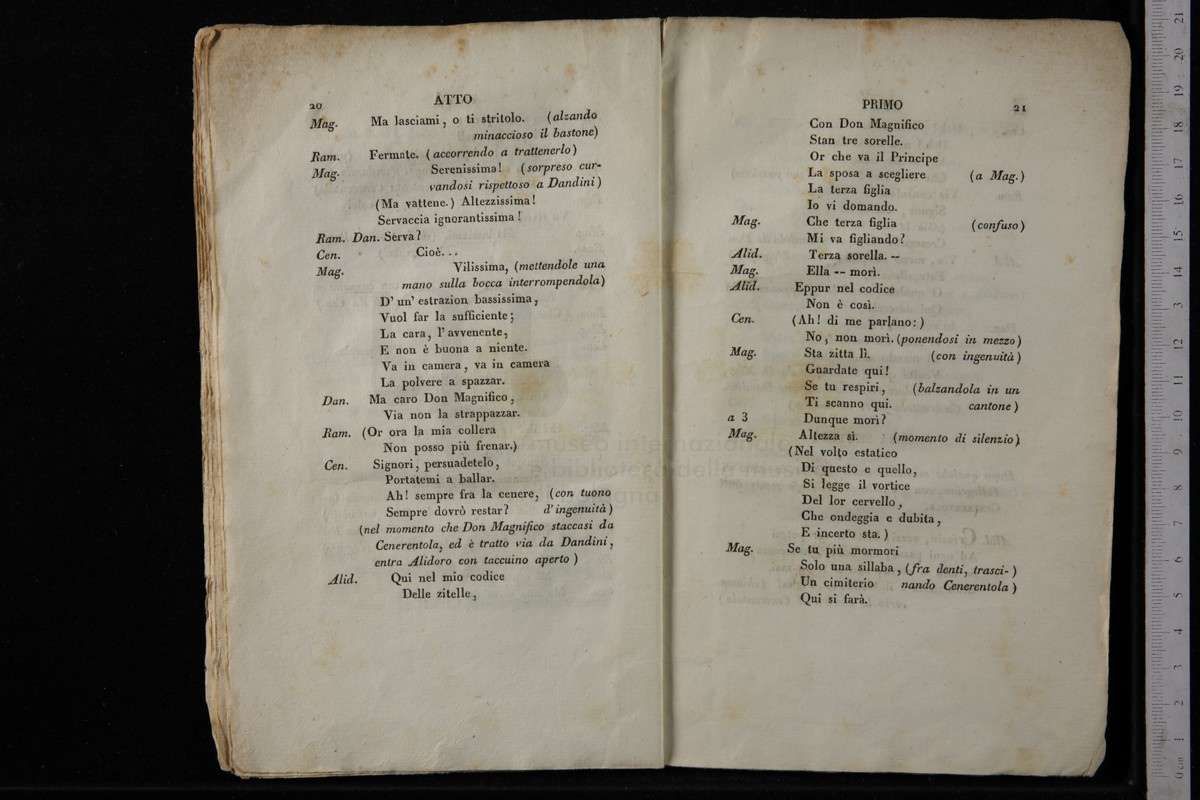 20
ATTO
Mag. Ma lasciami, o ti stritolo. (alzando
minaccioso il bastone)
Ram. Fermate. (accorrendo a trattenerlo)
Mag. Serenissima! (sorpreso cur-
vandosi rispettoso a Dandini)
(Ma vattene.) Altezzissima!
Servaccia ignorantissima!
Ram. Dan. Serva?
Cen. Cioè...
Mag. Vilissima, (mettendole una
mano sulla bocca interrompendola)
D' un' estrazion bassissima,
Vuol far la sufficiente;
La cara, l' avvenente,
E non è buona a niente.
Va in camera, va in camera
La polvere a spazzar.
Dan. Ma caro Don Magnifico,
Via non la strappazzar.
Ram. (Or ora la mia collera
Non posso più frenar.)
Cen. Signori, persuadetelo,
Portatemi a ballar.
Ah! sempre fra la cenere, (con tuono
Sempre dovrò restar? d' ingenuità)
(nel momento che Don Magnifico staccasi da
Cenerentola, ed è tratto via da Dandini,
entra Alidoro con taccuino aperto)
Alid. Qui nel mio codice
Delle zitelle,
PRIMO
21
Con Don Magnifico
Stan tre sorelle.
Or che va il Principe
La sposa a scegliere (a Mag.)
La terza figlia
Io vi domando.
Mag. Che terza figlia (confuso)
Mi va figliando?
Alid. Terza sorella. --
Mag. Ella -- morì.
Alid. Eppur nel codice
Non è così.
Cen. (Ah! di me parlano:)
No, non morì. (ponendosi in mezzo)
Mag. Sta zitta lì. (con ingenuità)
Guardate qui!
Se tu respiri, (balzandola in un
Ti scanno qui. cantone)
a 3 Dunque morì?
Mag. Altezza sì. (momento di silenzio)
(Nel volto estatico
Di questo e quello,
Si legge il vortice
Del lor cervello,
Che ondeggia e dubita,
E incerto sta.)
Mag. Se tu più mormori
Solo una sillaba, (fra denti, trasci-)
Un cimiterio nando Cenerentola)
Qui si farà.
museo internazionale
e biblioteca della musica